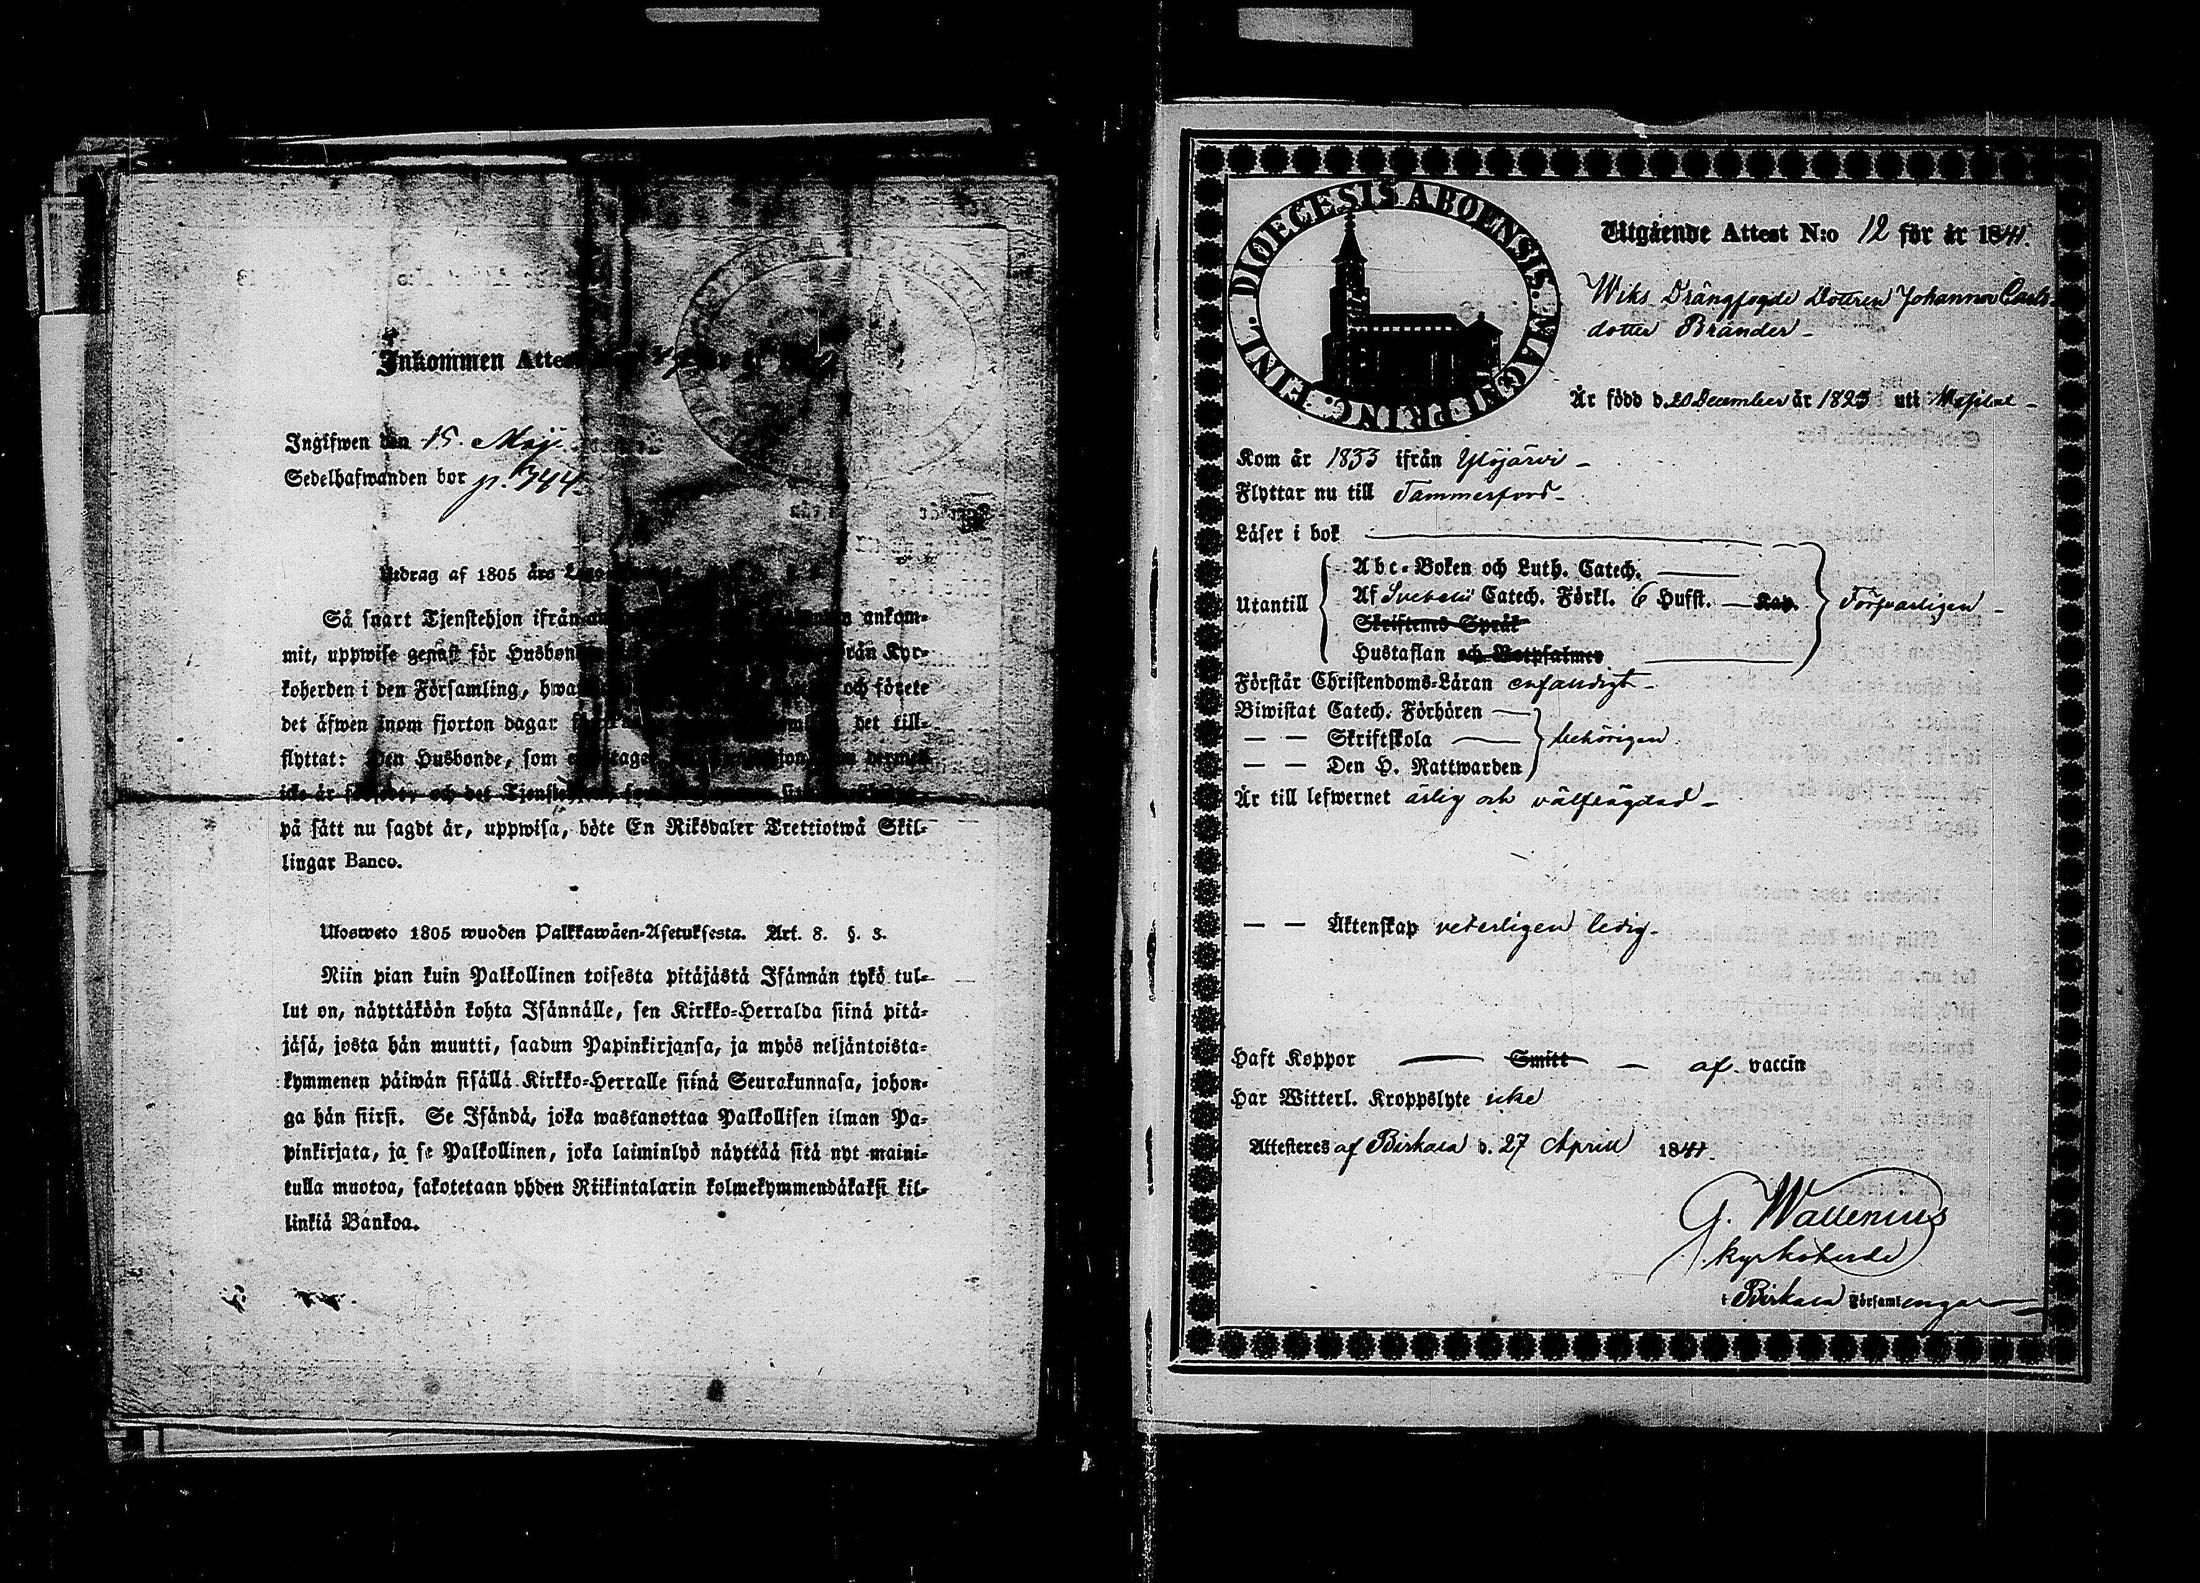 Inkommen Attest
Ingifwen den 15. Maj.
Sedelhafwanden bor p. 344.
Utdrag af 1805 års
Så snart Tjenstehjon ifrån ankom-
mit, uppwise genast för Husbonden från Kyr-
koherden i den Församling, och förete
det äfwen inom fjorton dagar det till-
flyttat: Den Husbonde, som
icke är och det
på sätt nu sagdt är, uppwisa, böte En Riksdaler Trettiotwå Skil-
lingar Banco.
Ulosweto 1805 wuoden Palkkawäen-Asetuksesta. Art. 8. §. 3.
Niin pian kuin Palkollinen toisesta pitäjästä Isännän tykö tul-
lut on, näyttäköön kohta Isännälle, sen Kirkko-Herralda siinä pitä-
jäsä, josta hän muutti, saadun Papinkirjansa, ja myös neljäntoista-
kymmenen päiwän sisällä Kirkko-Herralle siinä Seurakunnasa, johon-
ga hän siirsi. Se Isändä, joka wastanottaa Palkollisen ilman Pa-
pinkirjata, ja se Palkollinen, joka laiminlyö näyttää sitä nyt maini-
tulla muotoa, sakotetaan yhden Riikintalarin kolmekymmendäkaksi kil-
linkiä Bankoa.
FINL. DIOECESIS ABOENSIS. MAGNI PRINC.
Utgående Attest N:o 12 för år 1841.
Wiks Drängfogde Dottren Johanna Carls-
dotter Brander
Är född d. 20 December år 1823 uti
Kom år 1833 ifrån Ylöjärvi
Flyttar nu till Tammerfors
Läser i bok
Utantill
Abc-Boken och Luth. Catech.
Af Svebelii Catech. Förkl. 6 Hufst. Kap.
Skriftens Språk
Hustaflan och Botpsalmer
Försvarligen
Förstår Christendoms-Läran enfaldigt
Biwistat Catech. Förhören
— — Skriftskola
— — Den H. Nattwarden
behörigen
Är till lefwernet ärlig och välfrägdad
— — Äktenskap veterligen ledig.
Haft Koppor Smitt af vaccin
Har Witterl. Kroppslyte icke
Attesteres af Birkala d. 27 April 1841.
G. Wallenius
kyrkoherde
i Birkala Församlingar